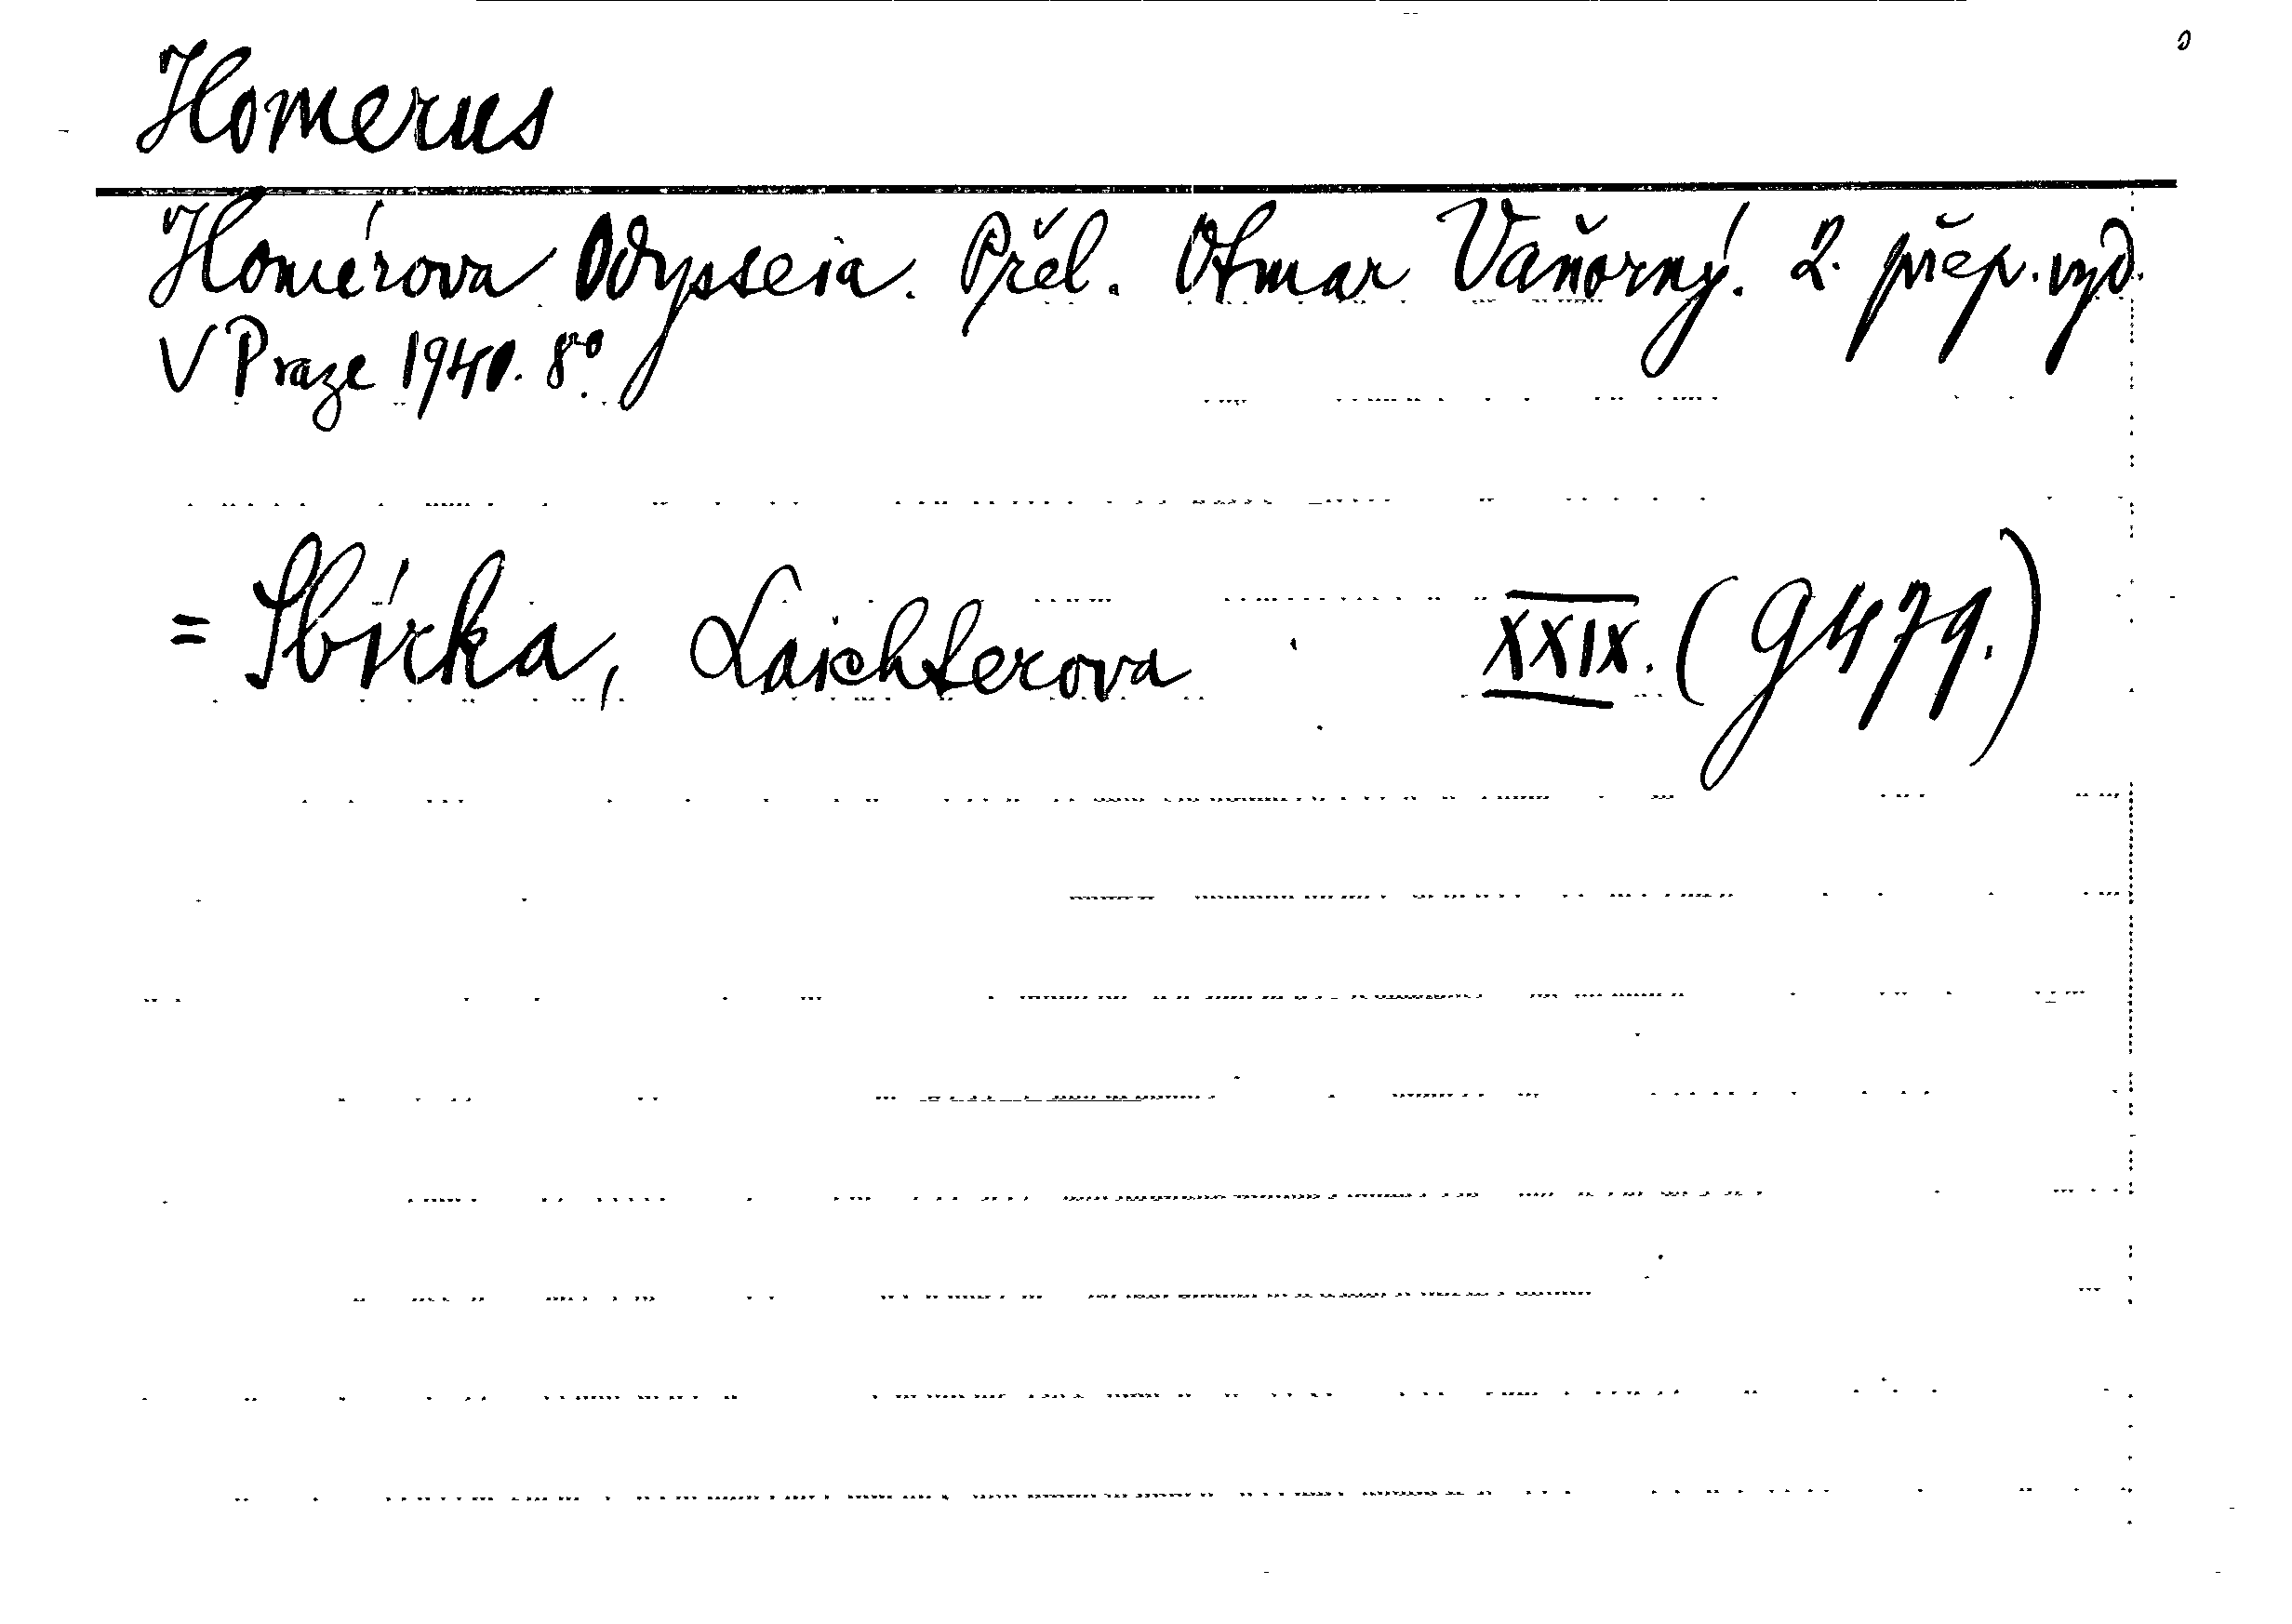 Homerus
Homérova Odysseia. Přel. Otmar Vaňorný. 2. přep. vyd.
V Praze 1940. 8°.
= Sbírka, Laichterova XXIX. (9479.)